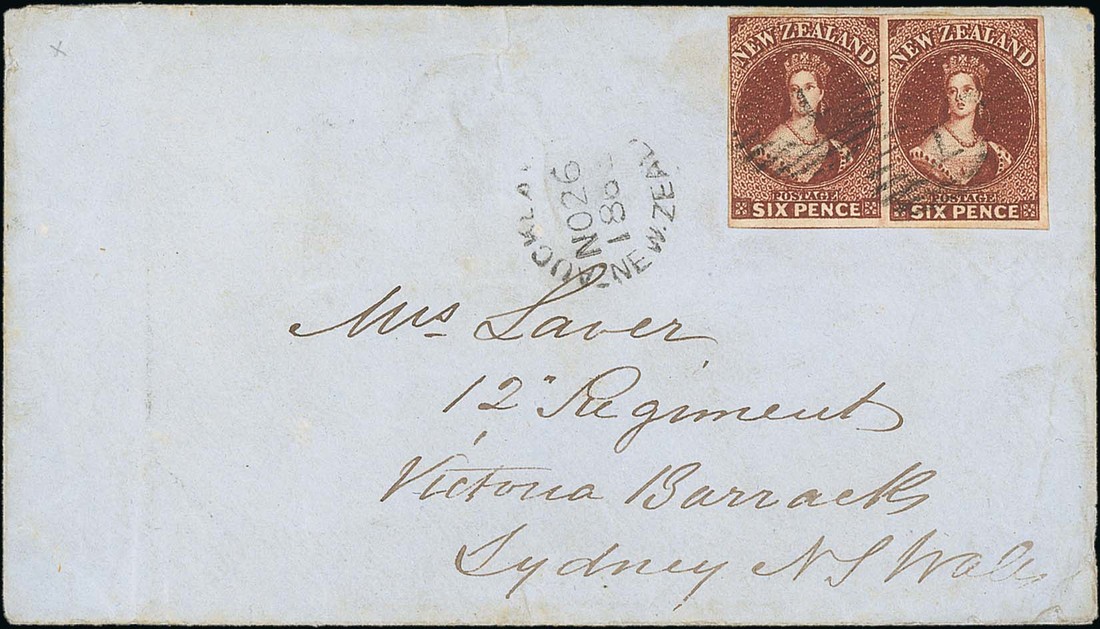 NEW ZEALAND
POSTAGE
SIX PENCE
NEW ZEALAND
POSTAGE
SIX PENCE
NO 26
Mrs Laver
12" Regiment
Victoria Barracks
Sydney N S Wales